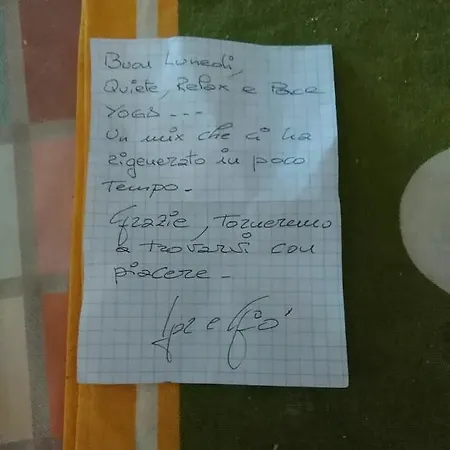 Buon Lunedì,
Quiete, Relax e Pace
YOGA ---
Un mix che ci ha
rigenerato in poco
Tempo -
Grazie, Torneremo
a trovarvi con
piacere -
e Giò